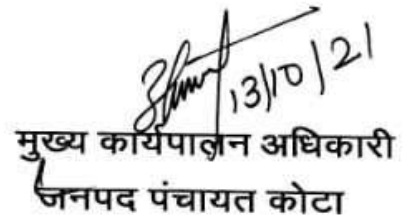 13/10/21
मुख्य कार्यपालन अधिकारी
जनपद पंचायत कोटा